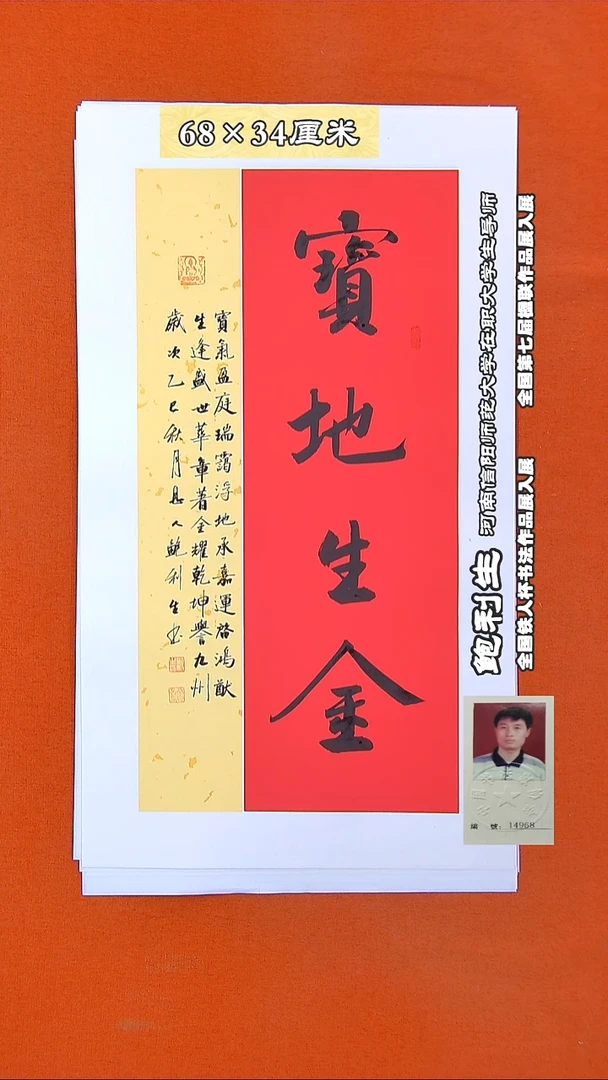 68×34厘米
寶地生金
寶氣盈庭瑞靄浮地承嘉運啓鴻猷
生逢盛世華章著金耀乾坤譽九州
歲次乙巳秋月息人鲍利生书
鲍利生 河南信阳师范大学在职大学生导师
全国铁人杯书法作品展入展 全国第七届楹联作品展入展
编 號：14968